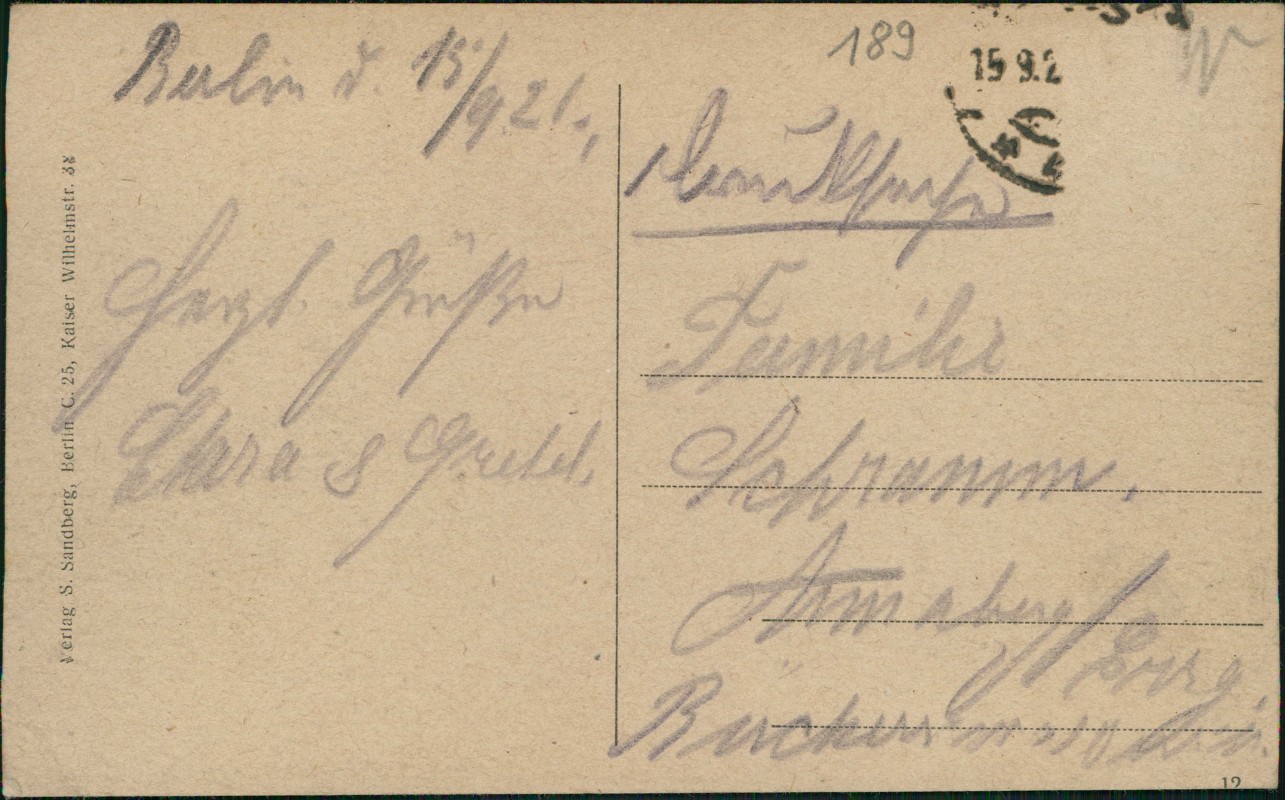 Berlin d. 15/9.21.,
Herzl. Grüße
Clara & Gretel.
Verlag S. Sandberg, Berlin C. 25, Kaiser Wilhelmstr. 38
189
15 9.2
Drucksache
Familie
Schramm.
Annaberg / Erzg.
12